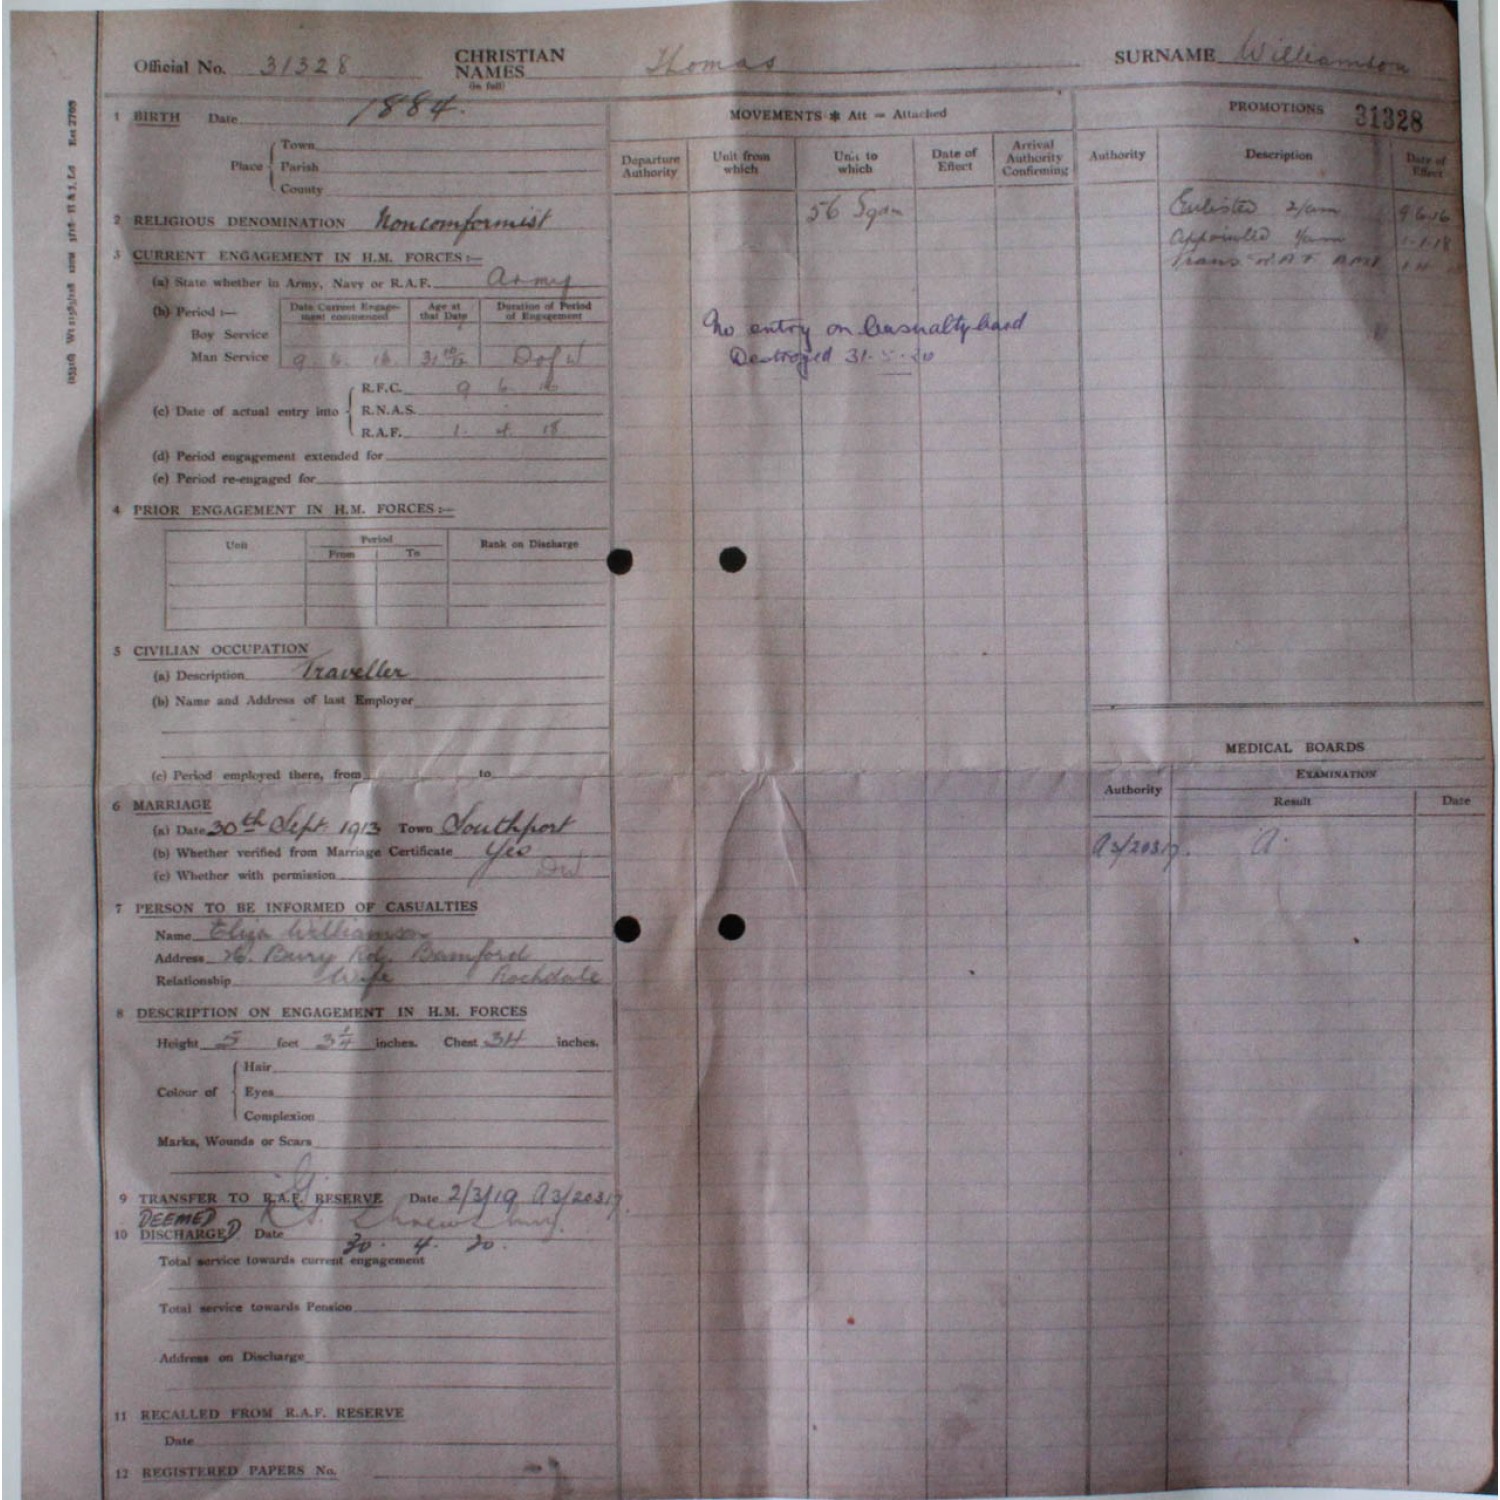 Official No. 31328 CHRISTIAN NAMES (in full) Thomas SURNAME Williamson
1 BIRTH Date 1884.
Place Town
Parish
County
2 RELIGIOUS DENOMINATION Noncomformist
3 CURRENT ENGAGEMENT IN H.M. FORCES:—
(a) State whether in Army, Navy or R.A.F. Army
(b) Period :— Date Current Engagement commenced Age at that Date Duration of Period of Engagement
Boy Service
Man Service 9. 6. 16 31 10/12 D of W
(c) Date of actual entry into R.F.C. 9 6 16
R.N.A.S.
R.A.F. 1. 4. 18
(d) Period engagement extended for
(e) Period re-engaged for
4 PRIOR ENGAGEMENT IN H.M. FORCES:—
Unit Period Rank on Discharge
From To
5 CIVILIAN OCCUPATION
(a) Description Traveller
(b) Name and Address of last Employer
(c) Period employed there, from to
6 MARRIAGE
(a) Date 30th Sept. 1913 Town Southport
(b) Whether verified from Marriage Certificate Yes
(c) Whether with permission
7 PERSON TO BE INFORMED OF CASUALTIES
Name Eliza Williamson
Address Bury Rd. Bamford
Relationship Wife Rochdale
8 DESCRIPTION ON ENGAGEMENT IN H.M. FORCES
Height 5 feet 3 1/4 inches. Chest 34 inches.
Colour of Hair
Eyes
Complexion
Marks, Wounds or Scars
9 TRANSFER TO R.A.F. RESERVE Date 2/3/19 A3/20317.
DEEMED Shrewsbury.
10 DISCHARGED Date 30. 4. 20.
Total service towards current engagement
Total service towards Pension
Address on Discharge
11 RECALLED FROM R.A.F. RESERVE
Date
12 REGISTERED PAPERS No.
MOVEMENTS * Att = Attached
Departure Authority Unit from which Unit to which Date of Effect Arrival Authority Confirming
56 Sqdn
No entry on Casualty card
Destroyed 31. 5. 20
PROMOTIONS 31328
Authority Description Date of Effect
Enlisted 2/am 9 6 16
Appointed 1/am 1.1.18
Trans RAF 1 4
MEDICAL BOARDS
Authority EXAMINATION
Result Date
A3/20317. A.